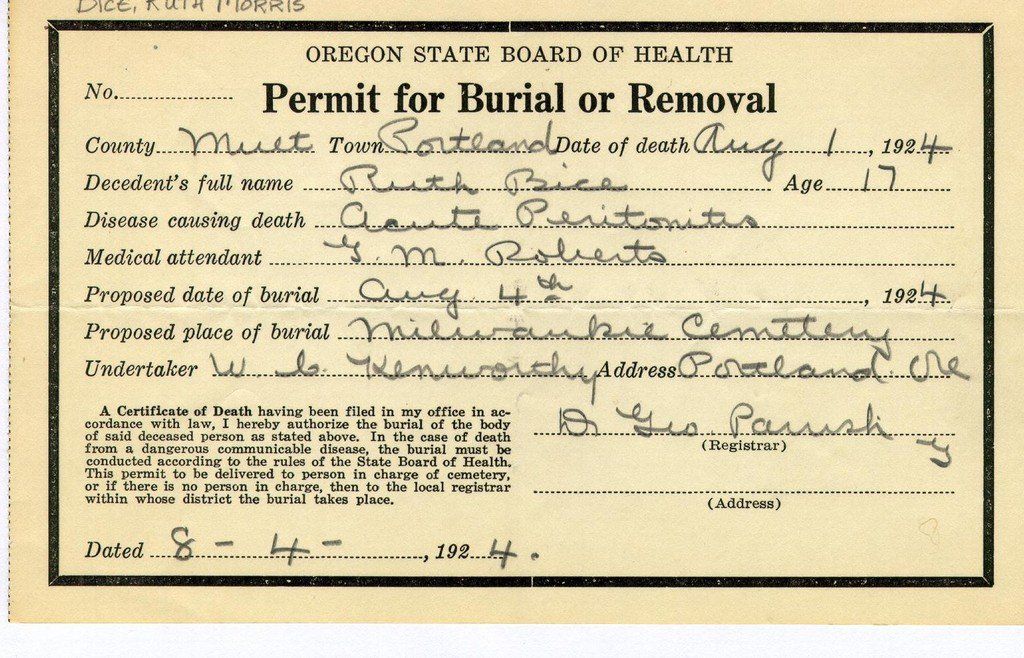 DICE, RUTH MORRIS
OREGON STATE BOARD OF HEALTH
No.
Permit for Burial or Removal
County Mult Town Portland Date of death Aug 1, 1924
Decedent's full name Ruth Bice Age 17
Disease causing death Acute Peritonitis
Medical attendant G. M. Roberts
Proposed date of burial Aug 4th, 1924
Proposed place of burial Milwaukie Cemetery
Undertaker W. C. Kenworthy Address Portland Ore
A Certificate of Death having been filed in my office in ac-
cordance with law, I hereby authorize the burial of the body
of said deceased person as stated above. In the case of death
from a dangerous communicable disease, the burial must be
conducted according to the rules of the State Board of Health.
This permit to be delivered to person in charge of cemetery,
or if there is no person in charge, then to the local registrar
within whose district the burial takes place.
Dr Geo Parrish
(Registrar)
(Address)
Dated 8-4-, 1924.